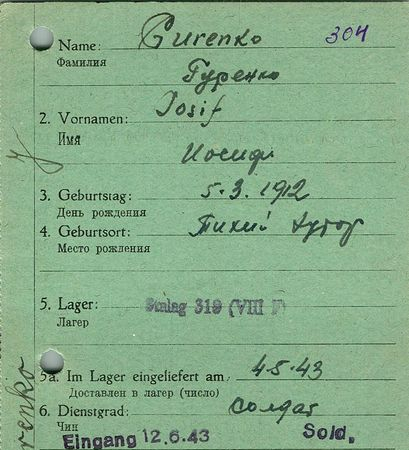 Name: Gurenko 304
Фамилия
Гуренко
2. Vornamen: Iosif
Имя
Иосиф
3. Geburtstag: 5.3.1912
День рождения
4. Geburtsort: Тихий хутор
Место рождения
5. Lager: Stalag 319 (VIII F)
Лагер
5a. Im Lager eingeliefert am: 4.5.43
Доставлен в лагер (число)
6. Dienstgrad: солдат
Чин Sold.
Eingang 12.6.43
renko